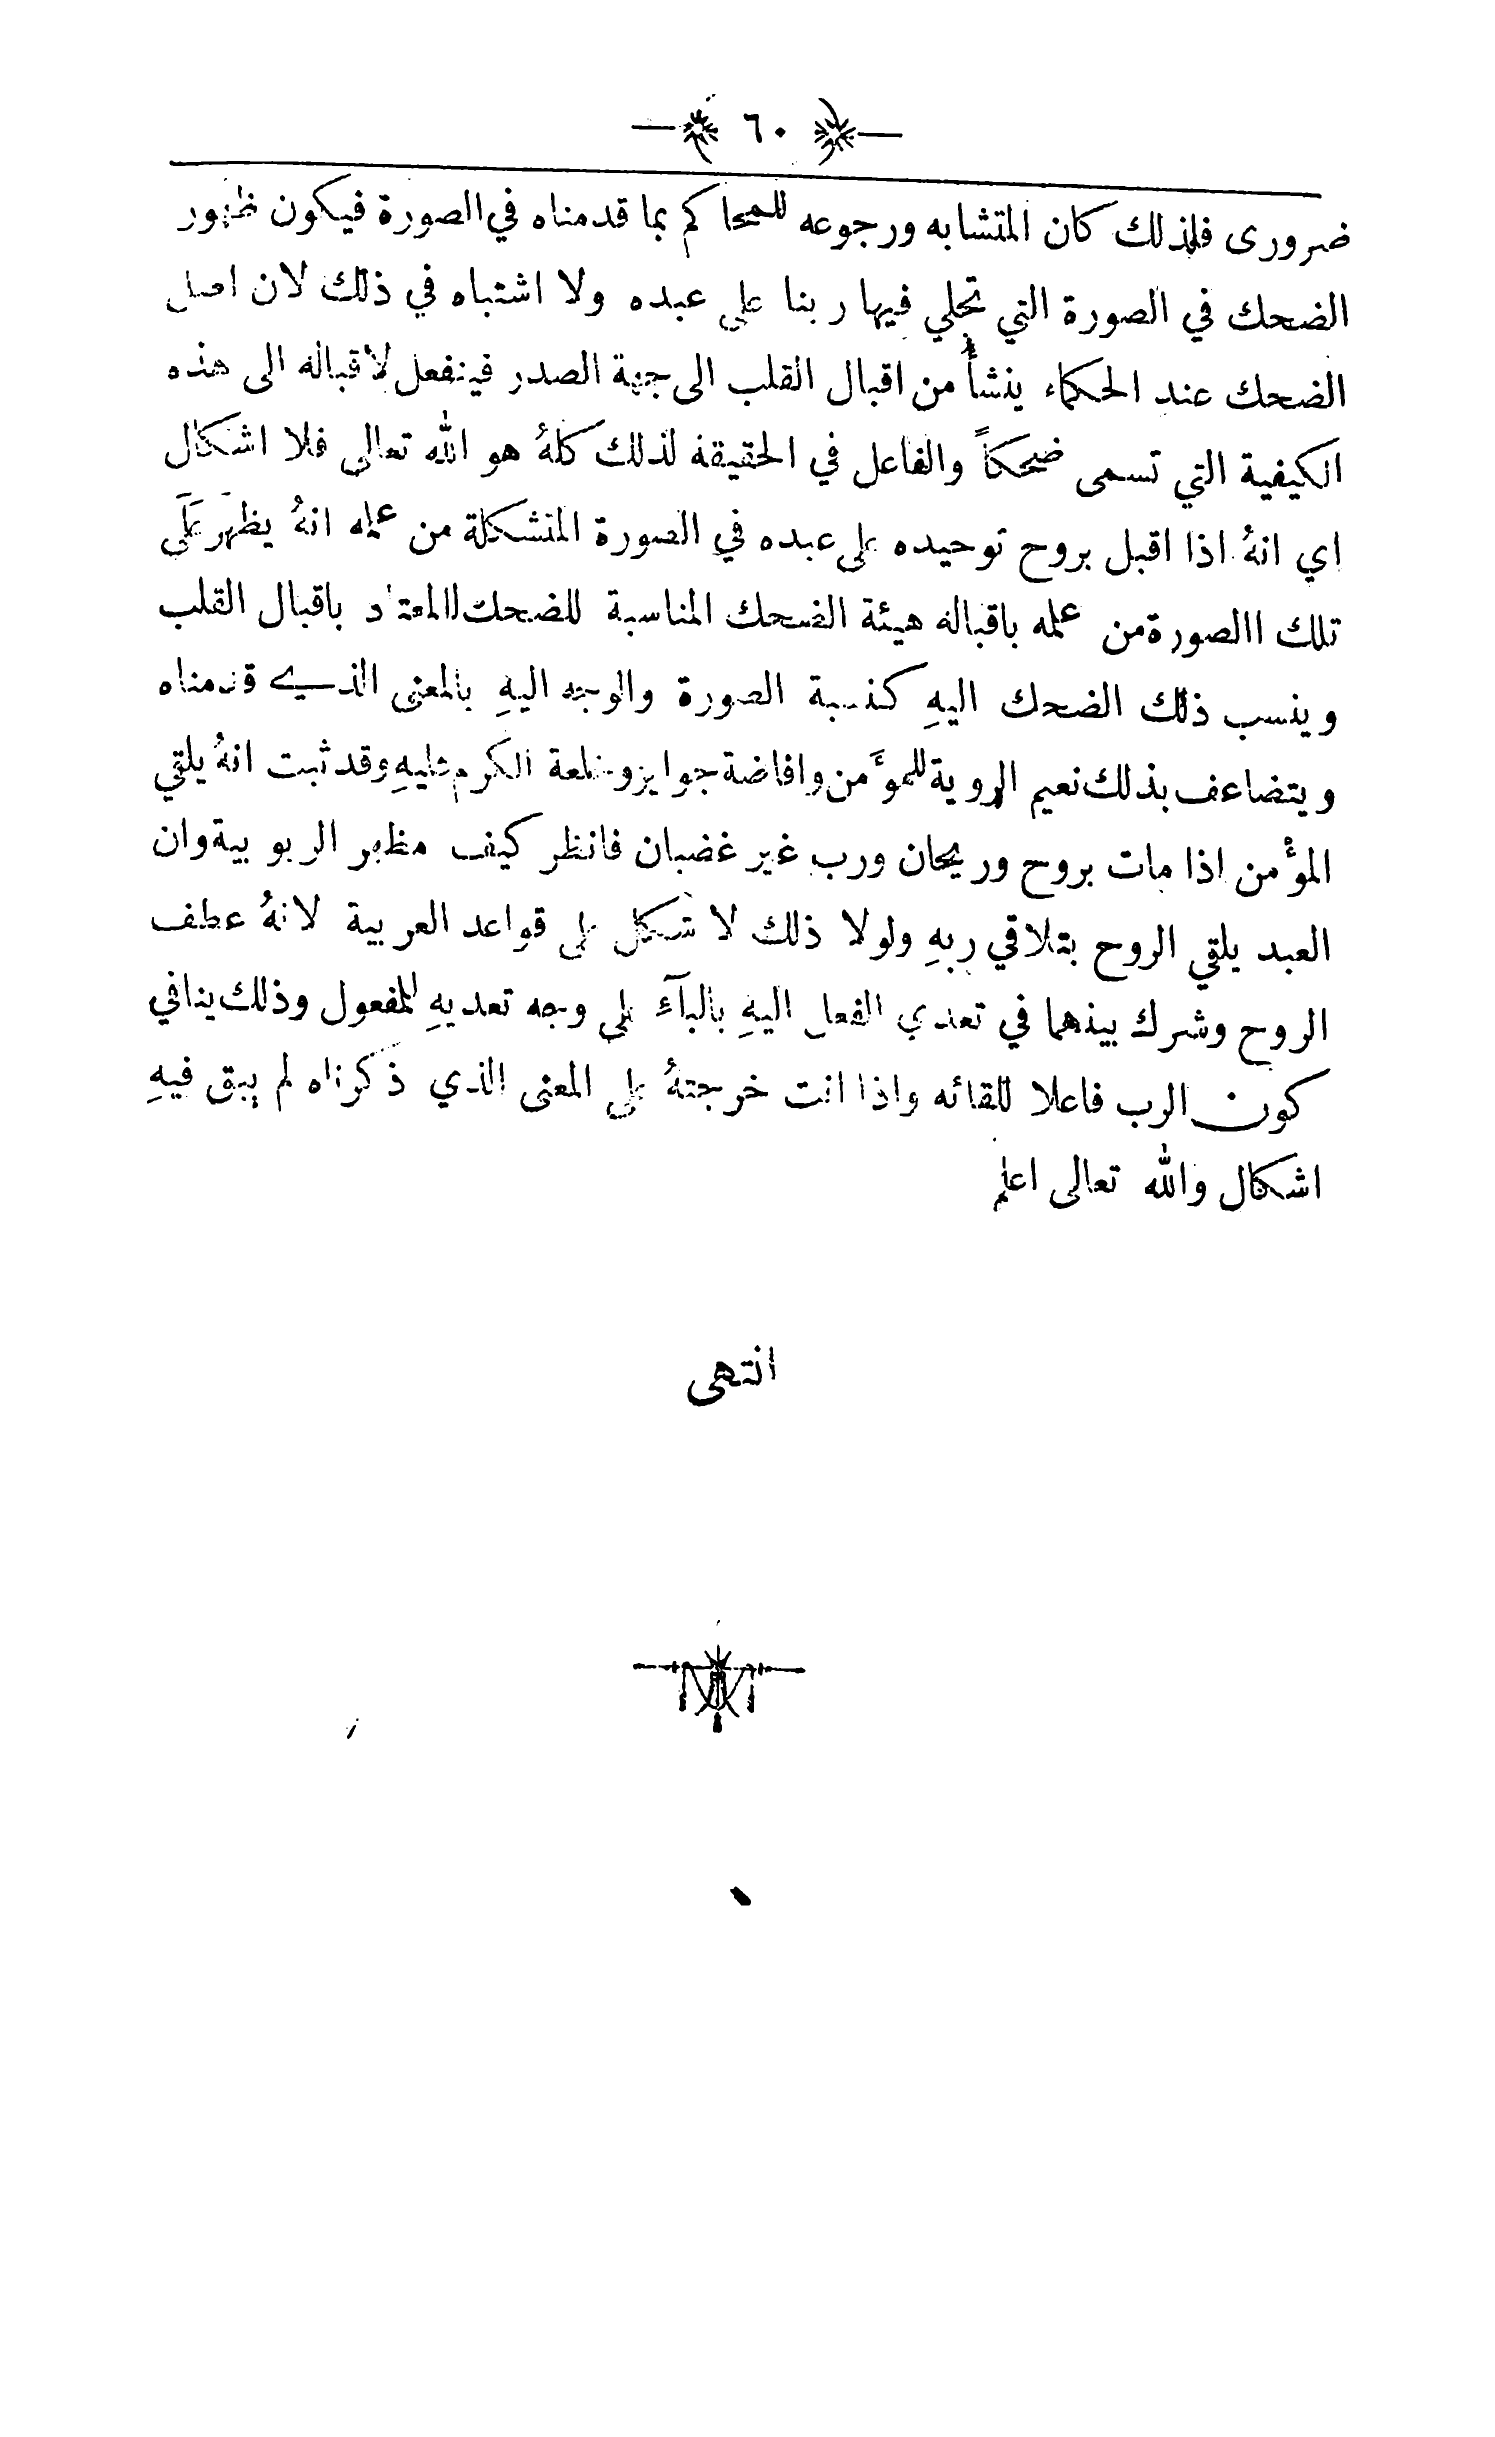 ٦٠
ضرورى فلذلك كان المتشابه ورجوعه للمحاكم بما قدمناه في الصورة فيكون ظهور
الضحك في الصورة التي تجلي فيها ربنا على عبده ولا اشتباه في ذلك لان اصل
الضحك عند الحكماء ينشأ من اقبال القلب الى جهة الصدر فينفعل لاقباله الى هذه
الكيفية التي تسمى ضحكاً والفاعل في الحقيقة لذلك كلهُ هو الله تعالى فلا اشكال
اي انهُ اذا اقبل بروح توحيده على عبده في الصورة المتشكلة من عمله انهُ يظهر على
تلك االصورة من عمله باقباله هيئة الضحك المناسبة للضحك المعتاد باقبال القلب
وينسب ذلك الضحك اليهِ كنسبة الصورة والوجه اليهِ بالمعنى الذي قدمناه
ويتضاعف بذلك نعيم الروية للمؤَمن وافاضة جوايز وخلعة الكرم عليهِ وقد ثبت انهُ يلقي
الموٴمن اذا مات بروح وريحان ورب غير غضبان فانظر كيف مظهر الربوبية وان
العبد يلقي الروح بتلاقي ربهِ ولولا ذلك لا شكل على قواعد العربية لانهُ عطف
الروح وشرك بينهما في تعدي الفعل اليهِ بالبآء على وجه تعديهِ للمفعول وذلك ينافي
كون الرب فاعلا للقائه واذا انت خرجتهُ على المعنى الذي ذكرناه لم يبق فيهِ
اشكال والله تعالى اعلم
انتهى